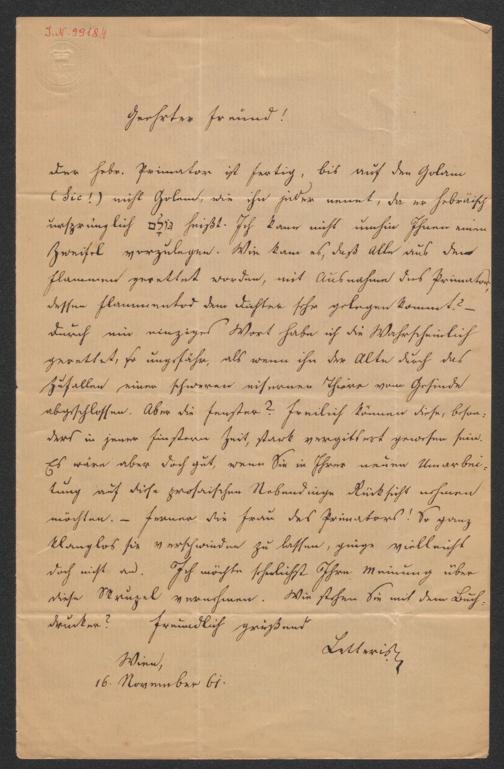 J.N. 99184
Geehrter Freund!
Der hebr. Primator ist fertig, bis auf den Golam
(Sic!) nicht Golem, wie ihn jeder nennt, da er hebräisch
ursprünglich גולם heißt. Ich kann nicht umhin Ihnen einen
Zweifel vorzulegen. Wie kam es, daß Alle aus den
Flammen gerettet worden, mit Ausnahme des Primators,
dessen Flammentod dem Dichter sehr gelegen kommt? —
Durch ein einziges Wort habe ich die Wahrscheinlich
gerettet, so ungefähr, als wenn ihn der Alte durch das
Zufallen einer schweren eisernen Thüre vom Gesinde
abgeschlossen. Aber die Fenster? Freilich können diese, beson-
ders in jener finstern Zeit, stark vergittert gewesen sein.
Es wäre aber doch gut, wenn Sie in Ihrer neuen Umarbei-
tung auf diese prosaischen Nebendinge Rücksicht nehmen
möchten. — Ferner die Frau des Primators! So ganz
klanglos sie verschwinden zu lassen, ginge vielleicht
doch nicht an. Ich möchte Ihre Meinung über
diese Skrupel vernehmen. Wie stehen Sie mit dem Buch-
drucker? Freundlich grüßend
Letteris
Wien,
16. November 61.